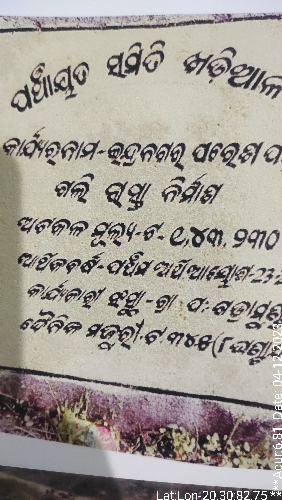 ପଞ୍ଚାୟତ ସମିତି ଖଡ଼ିଆଳ
କାର୍ଯ୍ୟରନାମ-ଇନ୍ଦ୍ରନଗର ପରେଶ
ଗଲି ରାସ୍ତା ନିର୍ମାଣ
ଅଟକଳ ମୂଲ୍ୟ-ଟ- ୧,୪୩,୨୩୦
ଆର୍ଥିକବର୍ଷ-ପଞ୍ଚମ ଅର୍ଥଆୟୋଗ-23-2
କାର୍ଯ୍ୟକାରୀ ସଂସ୍ଥା-ଗ୍ରା ପଂ:
ଦୈନିକ ମଜୁରୀ-ଟ ୩୪୫
Lat:Lon-20.30:82.75
***Acur:6.81 Date: 04-12-2023